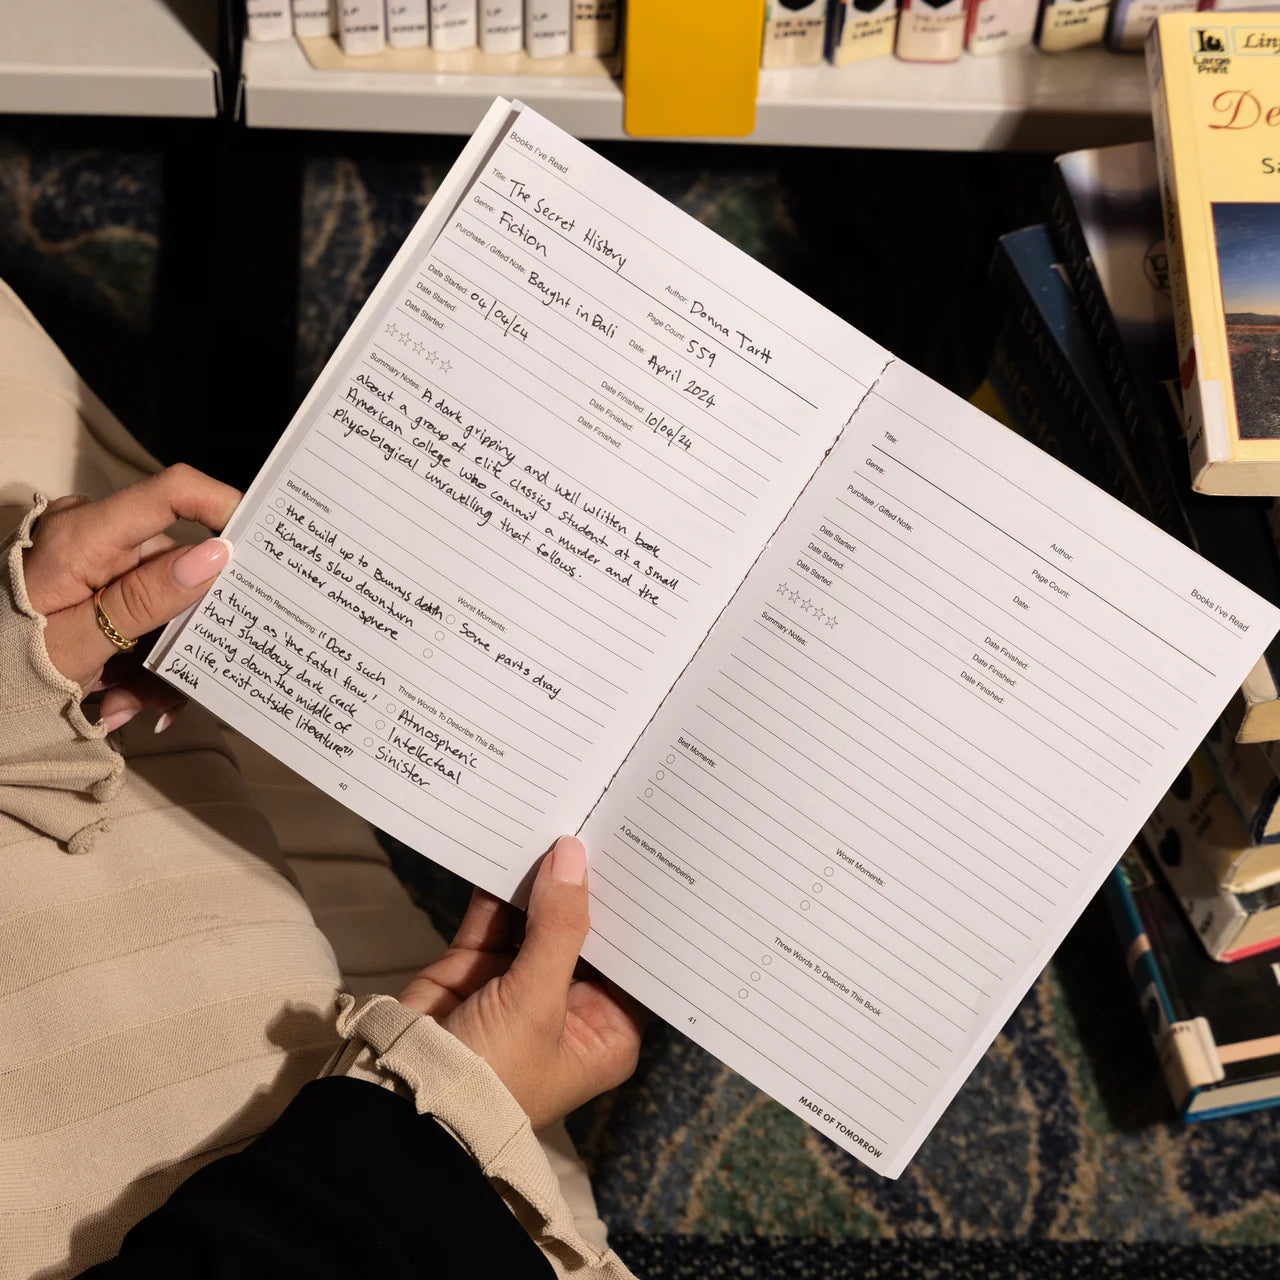 LP
KREW
LP
KREW
LP
KREW
LP
KREW
Large
Print
Books I've Read
Title: The Secret History
Author: Donna Tartt
Genre: Fiction
Page Count: 559
Purchase / Gifted Note: Bought in Bali
Date: April 2024
Date Started: 04/04/24
Date Finished: 10/04/24
Date Started:
Date Finished:
Date Started:
Date Finished:
Summary Notes: A dark gripping and well written book
about a group of elite classics student at a small
American college who commit a murder and the
physcological unravelling that follows.
Best Moments:
the build up to Bunnys death
Richards slow downturn
The winter atmosphere
Worst Moments:
Some parts dray
A Quote Worth Remembering: "Does such
a thing as 'the fatal flaw,'
that shaddowy dark crack
running down the middle of
a life, exist outside literature?"
Three Words To Describe This Book
Atmospheric
Intellectual
Sinister
40
Books I've Read
Title:
Author:
Genre:
Page Count:
Purchase / Gifted Note:
Date:
Date Started:
Date Finished:
Date Started:
Date Finished:
Date Started:
Date Finished:
Summary Notes:
Best Moments:
Worst Moments:
A Quote Worth Remembering:
Three Words To Describe This Book
41
MADE OF TOMORROW